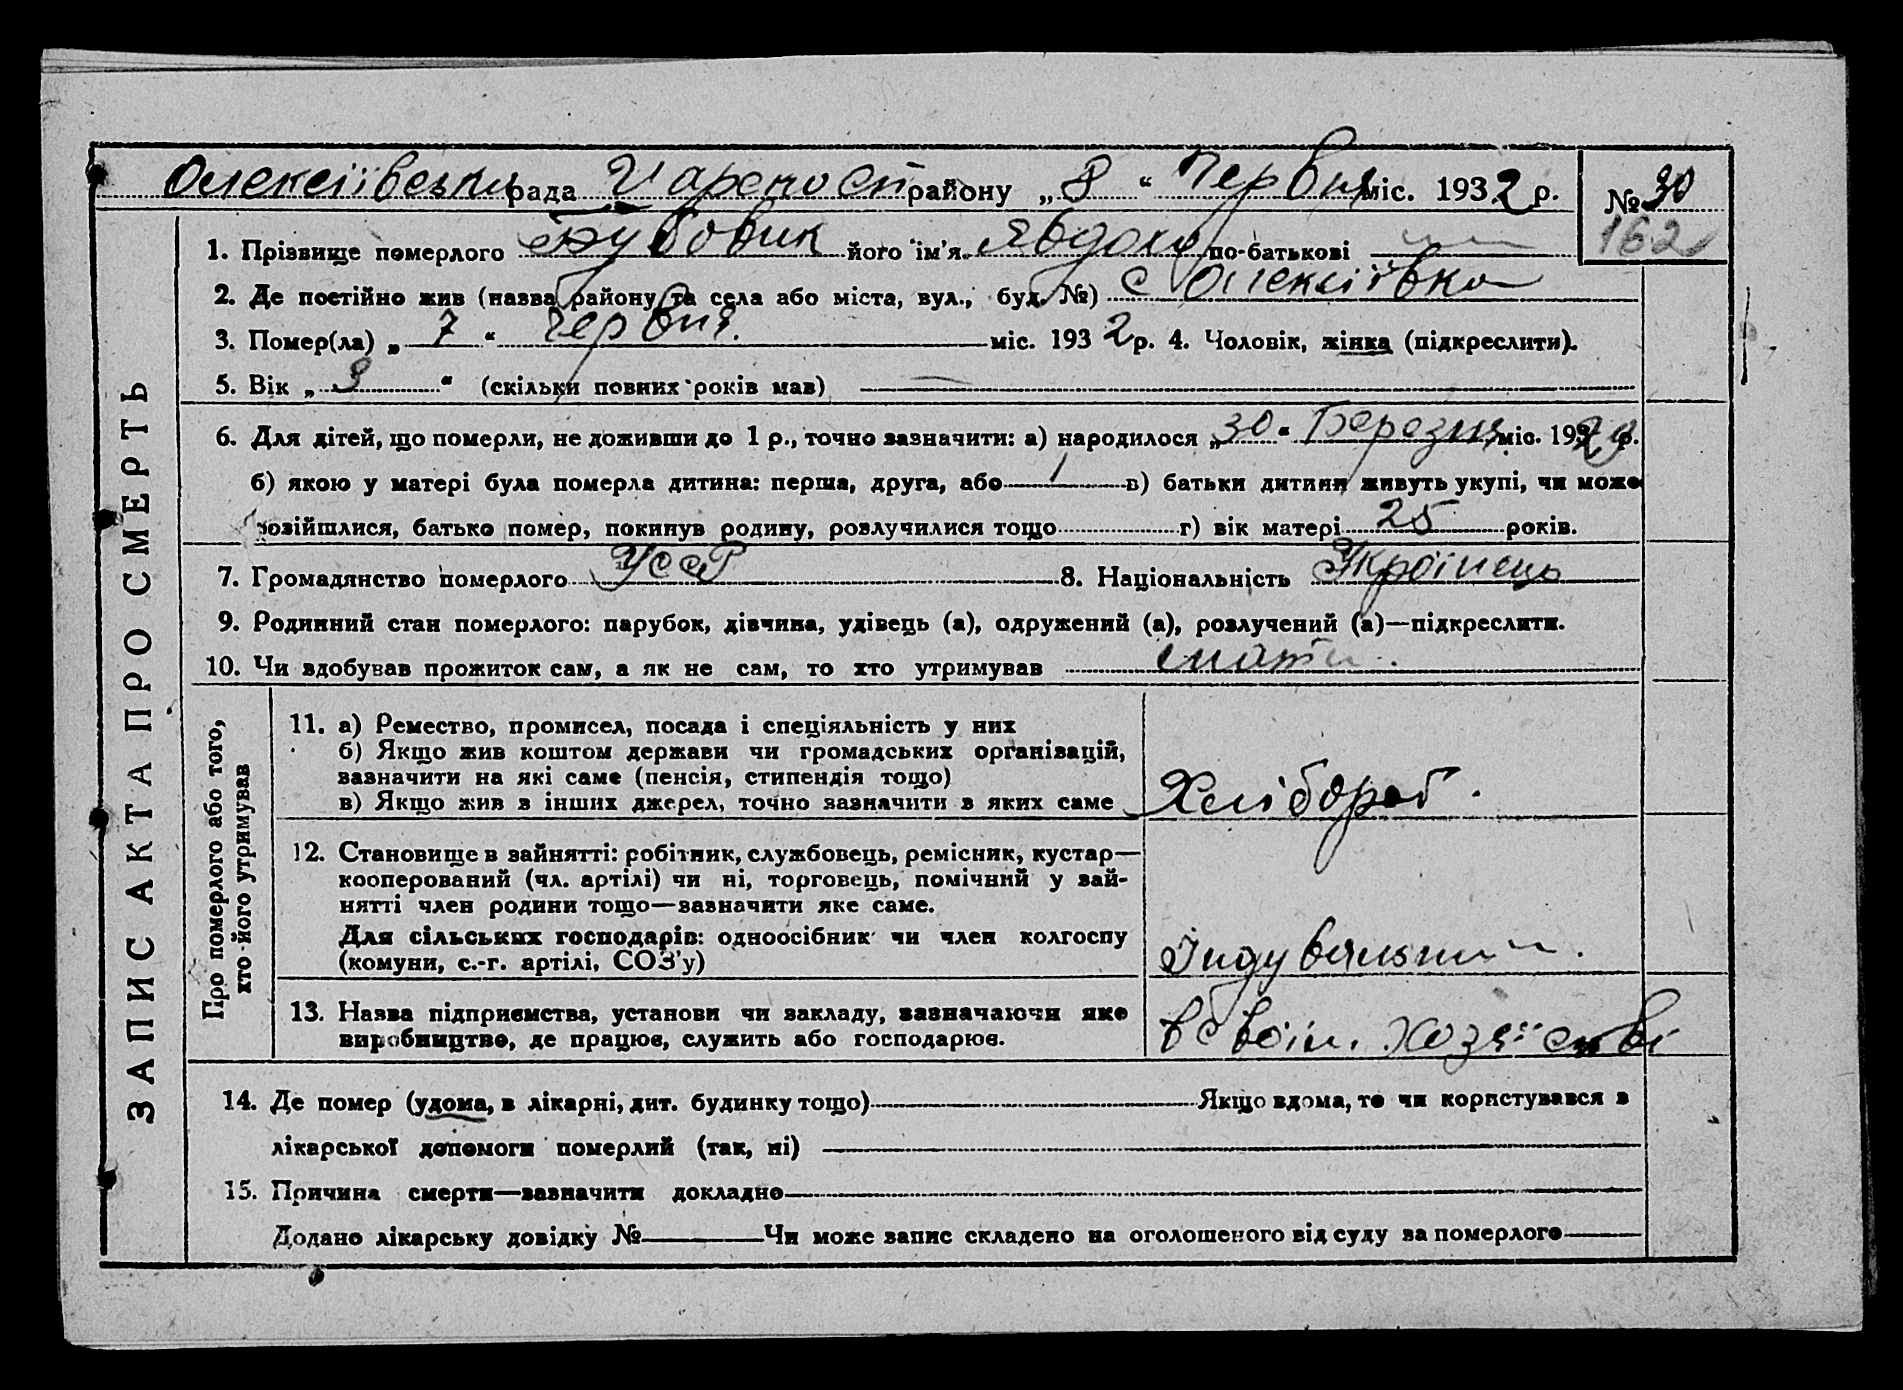 Олексіївська рада Царекост району „ 8 “ Червня міс. 1932 р. № 30
162
1. Прізвище померлого Бубовик його ім'я Явдоха по-батькові
2. Де постійно жив (назва району та села або міста, вул., буд. №) с Олексіївка
3. Помер(ла) „ 7 “ червня. міс. 1932 р. 4. Чоловік, жінка (підкреслити).
5. Вік „ 3 “ (скільки повних років мав)
6. Для дітей, що померли, не доживши до 1 р., точно зазначити: а) народилося „ 30 “ Березня міс. 1929 р.
б) якою у матері була померла дитина: перша, друга, або 1 в) батьки дитини живуть укупі, чи може
розійшлися, батько помер, покинув родину, розлучилися тощо г) вік матері 25 років.
7. Громадянство померлого УССР 8. Національність Українець
9. Родинний стан померлого: парубок, дівчина, удівець (а), одружений (а), розлучений (а)—підкреслити.
10. Чи здобував прожиток сам, а як не сам, то хто утримував мати.
ЗАПИС АКТА ПРО СМЕРТЬ
Про померлого або того,
хто його утримував
11. а) Ремество, промисел, посада і спеціяльність у них
б) Якщо жив коштом держави чи громадських організацій,
зазначити на які саме (пенсія, стипендія тощо)
в) Якщо жив з інших джерел, точно зазначити з яких саме Хлібороб.
12. Становище в зайнятті: робітник, службовець, ремісник, кустар—
кооперований (чл. артілі) чи ні, торговець, помічний у зай-
нятті член родини тощо—зазначити яке саме.
Для сільських господарів: одноосібник чи член колгоспу
(комуни, с.-г. артілі, СОЗ'у) Індувальний.
13. Назва підприємства, установи чи закладу, зазначаючи яке
виробництво, де працює, служить або господарює. в своїм хозяйстві
14. Де помер (удома, в лікарні, дит. будинку тощо) Якщо вдома, то чи користувався з
лікарської допомоги померлий (так, ні)
15. Причина смерти—зазначити докладно
Додано лікарську довідку № Чи може запис складено на оголошеного від суду за померлого